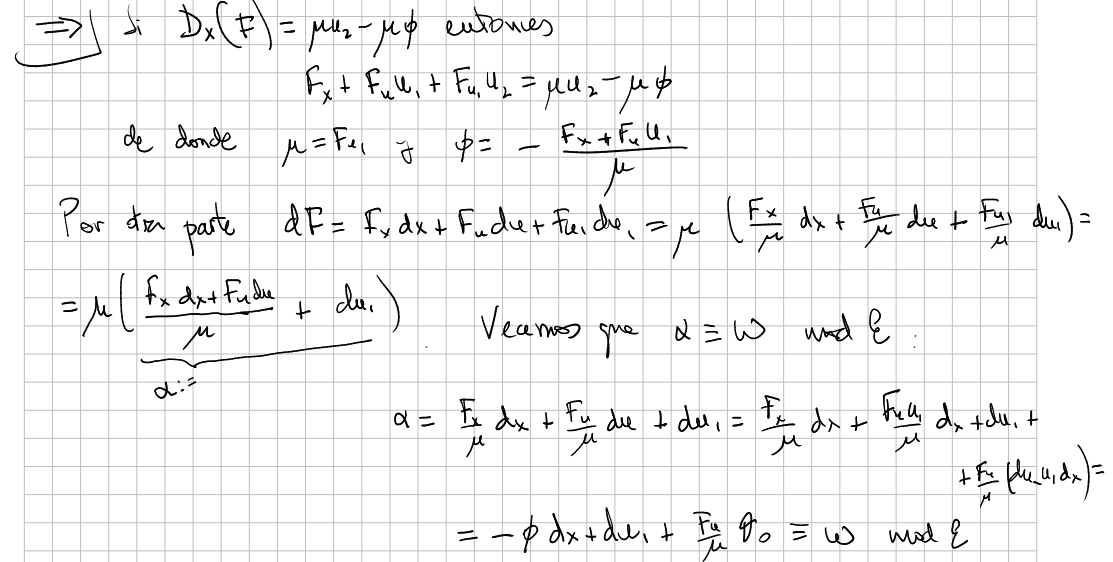 ⇒⌋ Si Dₓ(F) = μu₂ - μϕ entonces
Fₓ + Fᵤu₁ + F_{u₁}u₂ = μu₂ - μϕ
de donde μ = F_{u₁} y ϕ = - (Fₓ + Fᵤu₁)/μ
Por otra parte dF = Fₓdx + Fᵤdu + F_{u₁}du₁ = μ (Fₓ/μ dx + Fᵤ/μ du + F_{u₁}/μ du₁) =
= μ ((Fₓdx + Fᵤdu)/μ + du₁). Veamos que α ≡ ω mod ℰ :
α :=
α = Fₓ/μ dx + Fᵤ/μ du + du₁ = Fₓ/μ dx + Fᵤu₁/μ dx + du₁ +
+ Fᵤ/μ (du - u₁dx) =
= -ϕ dx + du₁ + Fᵤ/μ θ₀ ≡ ω mod ℰ